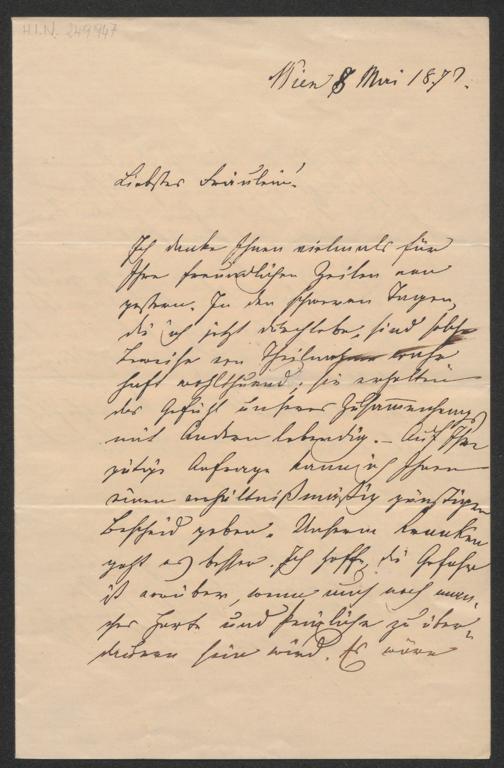 H.I.N. 249947
Wien 8 Mai 1877.
Liebstes Fräulein!
Ich danke Ihnen vielmals für
Ihre freundlichen Zeilen von
gestern. In den schweren Tagen,
die ich jetzt durchlebe, sind solche
Beweise von Theilnahme wahr
haft wohlthuend; sie erhalten
das Gefühl unseres Zusammenhangs
mit Andern lebendig. – Auf Ihre
gütige Anfrage kann ich Ihnen
einen verhältnißmäßig günstigen
Bescheid geben. Unserm Kranken
geht es besser. Ich hoffe, die Gefahr
ist vorüber, wenn auch noch man-
ches Harte und Peinliche zu über-
dauern sein wird. Es wäre